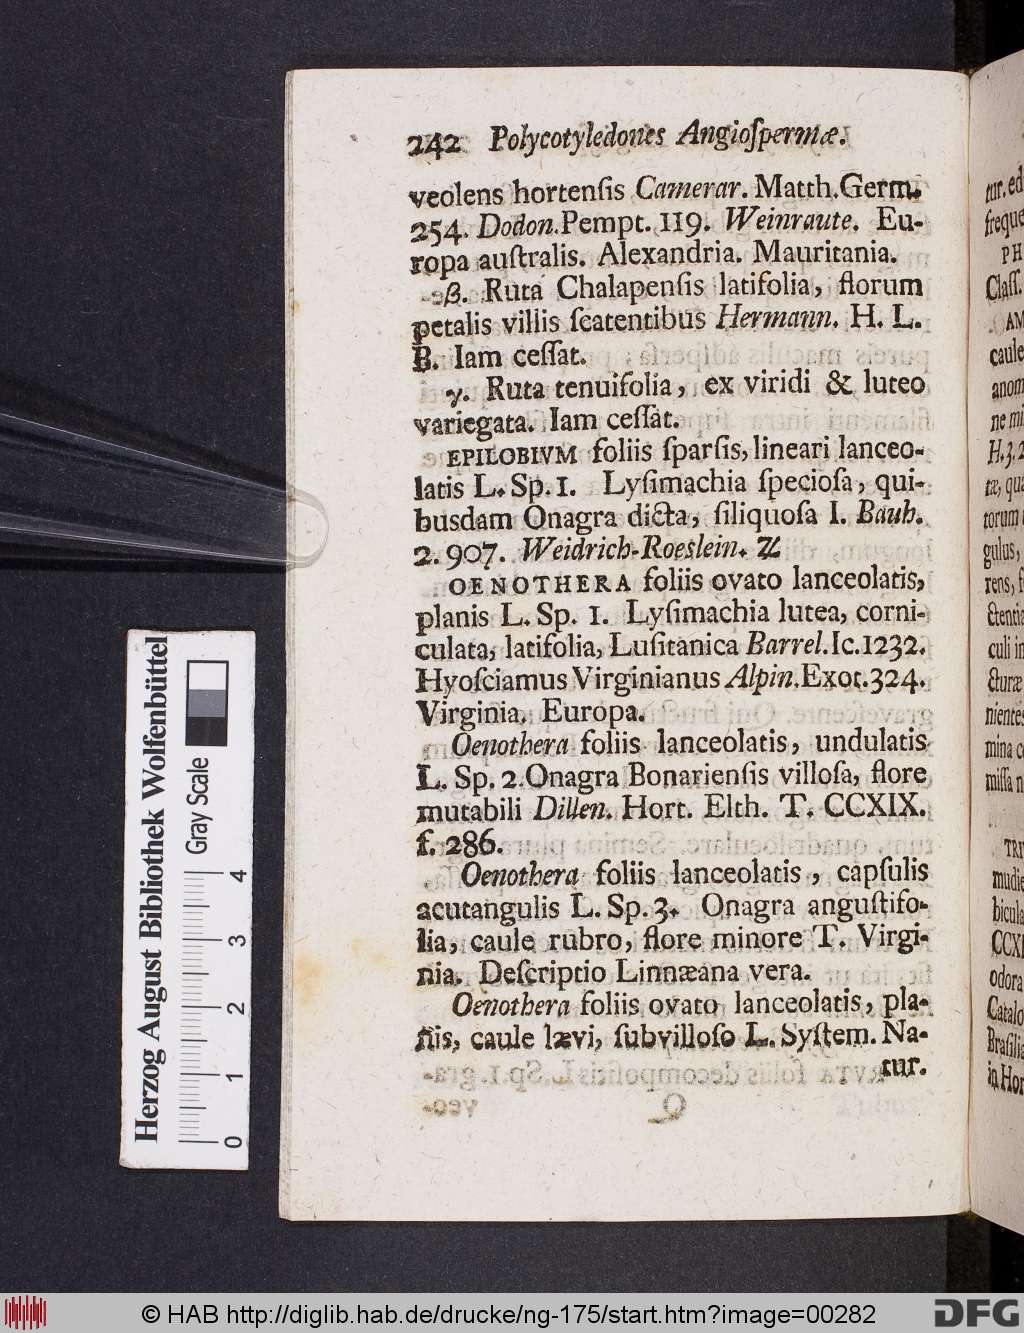 242 Polycotyledones Angioſpermæ.
veolens hortenſis Camerar. Matth. Germ.
254. Dodon. Pempt. 119. Weinraute. Eu-
ropa auſtralis. Alexandria. Mauritania.
β. Ruta Chalapenſis latifolia, florum
petalis villis ſcatentibus Hermann. H. L.
B. Iam ceſſat.
γ. Ruta tenuifolia, ex viridi & luteo
variegata. Iam ceſſat.
EPILOBIVM foliis ſparſis, lineari lanceo-
latis L. Sp. 1. Lyſimachia ſpecioſa, qui-
busdam Onagra dicta, ſiliquoſa I. Bauh.
2. 907. Weidrich-Roeslein. ♃
OENOTHERA foliis ovato lanceolatis,
planis L. Sp. 1. Lyſimachia lutea, corni-
culata, latifolia, Luſitanica Barrel. Ic. 1232.
Hyoſciamus Virginianus Alpin. Exot. 324.
Virginia. Europa.
Oenothera foliis lanceolatis, undulatis
L. Sp. 2. Onagra Bonarienſis villoſa, flore
mutabili Dillen. Hort. Elth. T. CCXIX.
f. 286.
Oenothera foliis lanceolatis, capſulis
acutangulis L. Sp. 3. Onagra anguſtifo-
lia, caule rubro, flore minore T. Virgi-
nia. Deſcriptio Linnæana vera.
Oenothera foliis ovato lanceolatis, pla-
nis, caule lævi, ſubvilloſo L. Syſtem. Na-
tur.
tur. ed
freque
PH
Claſſ.
AM
caule
anom
ne mi
H. 3. 2
tæ, qua
torum
gulus,
rens, f
ctentia
culi in
cturæ
nientes
mina c
miſſa n
TRI
mudie
bicula
CCXI
odora
Catalo
Braſilia
in Hor
Herzog August Bibliothek Wolfenbüttel
Gray Scale
0 1 2 3 4
© HAB http://diglib.hab.de/drucke/ng-175/start.htm?image=00282
DFG